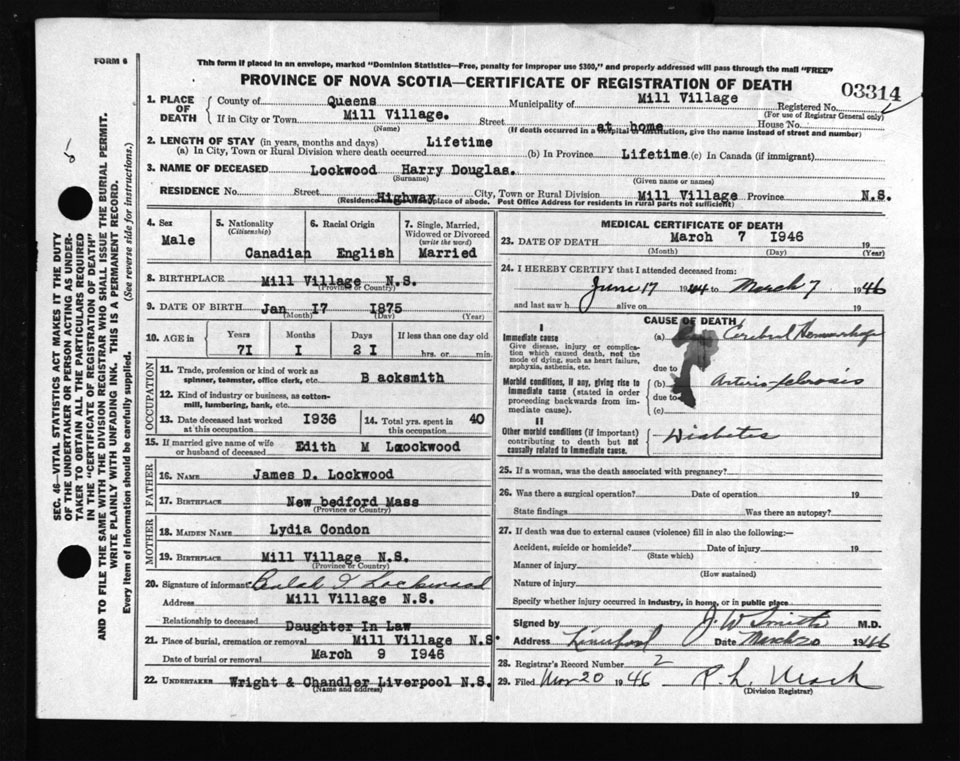 FORM 6
This form if placed in an envelope, marked "Dominion Statistics—Free, penalty for improper use $300," and properly addressed will pass through the mail "FREE"
PROVINCE OF NOVA SCOTIA—CERTIFICATE OF REGISTRATION OF DEATH
03314
1. PLACE OF DEATH
County of Queens Municipality of Mill Village Registered No.
(For use of Registrar General only)
If in City or Town Mill Village. Street at home House No.
(Name) (If death occurred in a hospital or institution, give the name instead of street and number)
2. LENGTH OF STAY (in years, months and days)
(a) In City, Town or Rural Division where death occurred Lifetime (b) In Province Lifetime. (c) In Canada (if immigrant)
3. NAME OF DECEASED Lockwood Harry Douglas.
(Surname) (Given name or names)
RESIDENCE No. Street Highway City, Town or Rural Division Mill Village Province N.S.
(Residence means place of abode. Post Office Address for residents in rural parts not sufficient)
4. Sex Male
5. Nationality (Citizenship) Canadian
6. Racial Origin English
7. Single, Married, Widowed or Divorced (write the word) Married
8. BIRTHPLACE Mill Village N.S.
(Province or Country)
9. DATE OF BIRTH Jan I7 I875
(Month) (Day) (Year)
10. AGE in Years 7I Months I Days 2I If less than one day old hrs. or min.
OCCUPATION
11. Trade, profession or kind of work as spinner, teamster, office clerk, etc. B acksmith
12. Kind of industry or business, as cotton-mill, lumbering, bank, etc.
13. Date deceased last worked at this occupation I936
14. Total yrs. spent in this occupation 40
15. If married give name of wife or husband of deceased Edith M Lockwood
FATHER
16. NAME James D. Lockwood
17. BIRTHPLACE New bedford Mass
(Province or Country)
MOTHER
18. MAIDEN NAME Lydia Condon
19. BIRTHPLACE Mill Village N.S.
(Province or Country)
20. Signature of informant Lockwood
Address Mill Village N.S.
Relationship to deceased Daughter In Law
21. Place of burial, cremation or removal Mill Village N.S.
Date of burial or removal March 9 I946
22. UNDERTAKER Wright & Chandler Liverpool N.S.
(Name and address)
MEDICAL CERTIFICATE OF DEATH
23. DATE OF DEATH March 7 I946 19
(Month) (Day) (Year)
24. I HEREBY CERTIFY that I attended deceased from:
June 17 1944 to March 7 1946
and last saw h alive on 19
CAUSE OF DEATH
I
Immediate cause
Give disease, injury or complication which caused death, not the mode of dying, such as heart failure, asphyxia, asthenia, etc.
(a) Cerebral Hemorrhage
due to
Morbid conditions, if any, giving rise to immediate cause (stated in order proceeding backwards from immediate cause).
(b) Arterio sclerosis
due to
(c)
II
Other morbid conditions (if important) contributing to death but not causally related to immediate cause.
Diabetes
25. If a woman, was the death associated with pregnancy?
26. Was there a surgical operation? Date of operation 19
State findings Was there an autopsy?
27. If death was due to external causes (violence) fill in also the following:—
Accident, suicide or homicide? Date of injury 19
(State which)
Manner of injury
(How sustained)
Nature of injury
Specify whether injury occurred in industry, in home, or in public place
Signed by J. W Smith M.D.
Address Liverpool Date March 20 1946
28. Registrar's Record Number 2
29. Filed Mar 20 1946
(Division Registrar)
SEC. 46—VITAL STATISTICS ACT MAKES IT THE DUTY
OF THE UNDERTAKER OR PERSON ACTING AS UNDER-
TAKER TO OBTAIN ALL THE PARTICULARS REQUIRED
IN THE "CERTIFICATE OF REGISTRATION OF DEATH"
AND TO FILE THE SAME WITH THE DIVISION REGISTRAR WHO SHALL ISSUE THE BURIAL PERMIT.
WRITE PLAINLY WITH UNFADING INK. THIS IS A PERMANENT RECORD.
Every item of Information should be carefully supplied. (See reverse side for instructions.)